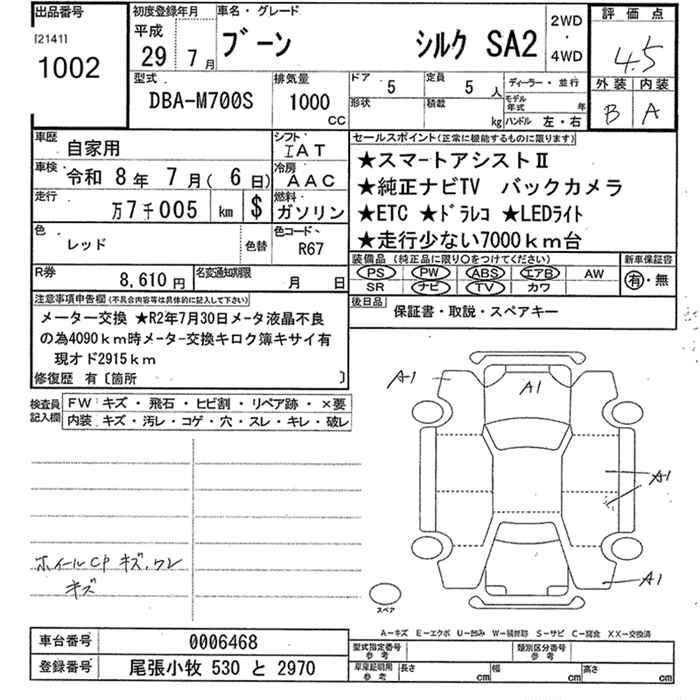 出品番号
[2141]
1002
初度登録年月
平成
29年 7月
車名・グレード
ブーン シルク SA2
2WD
・
4WD
評価点
4.5
外装 内装
B A
型式
DBA-M700S
排気量
1000
CC
ドア
5
形状
定員
5人
積載
kg
ディーラー・並行
モデル年式 年
ハンドル 左・右
車歴
自家用
シフト
IAT
車検
令和 8年 7月( 6日)
冷房
AAC
走行
万7千005 km $
燃料
ガソリン
色
レッド
色替
色コード
R67
R券
8,610円
名変通知期限
月 日
セールスポイント(正常に機能するものに限ります)
★スマートアシストⅡ
★純正ナビTV バックカメラ
★ETC ★ドラレコ ★LEDライト
★走行少ない7000km台
装備品 (純正品に限り○をつけてください)
PS PW ABS エアB AW
SR ナビ TV カワ
新車保証書
有・無
後日品
保証書・取説・スペアキー
注意事項申告欄(不具合内容等は具体的に記入して下さい)
メーター交換 ★R2年7月30日メータ液晶不良
の為4090km時メーター交換キロク簿キサイ有
現オド2915km
修復歴 有〔箇所 〕
検査員記入欄
FW:キズ・飛石・ヒビ割・リペア跡・×要
内装:キズ・汚レ・コゲ・穴・スレ・キレ・破レ
ホイールCP キズ、ワレ
キズ
A1
A1
A1
A1
スペア
A−キズ E−エクボ U−凹み W−補修跡 S−サビ C−腐食 XX−交換済
車台番号
0006468
登録番号
尾張小牧 530 と 2970
型式指定番号
参考
類別区分番号
参考
車庫証明用
参考
長さ cm
幅 cm
高さ cm